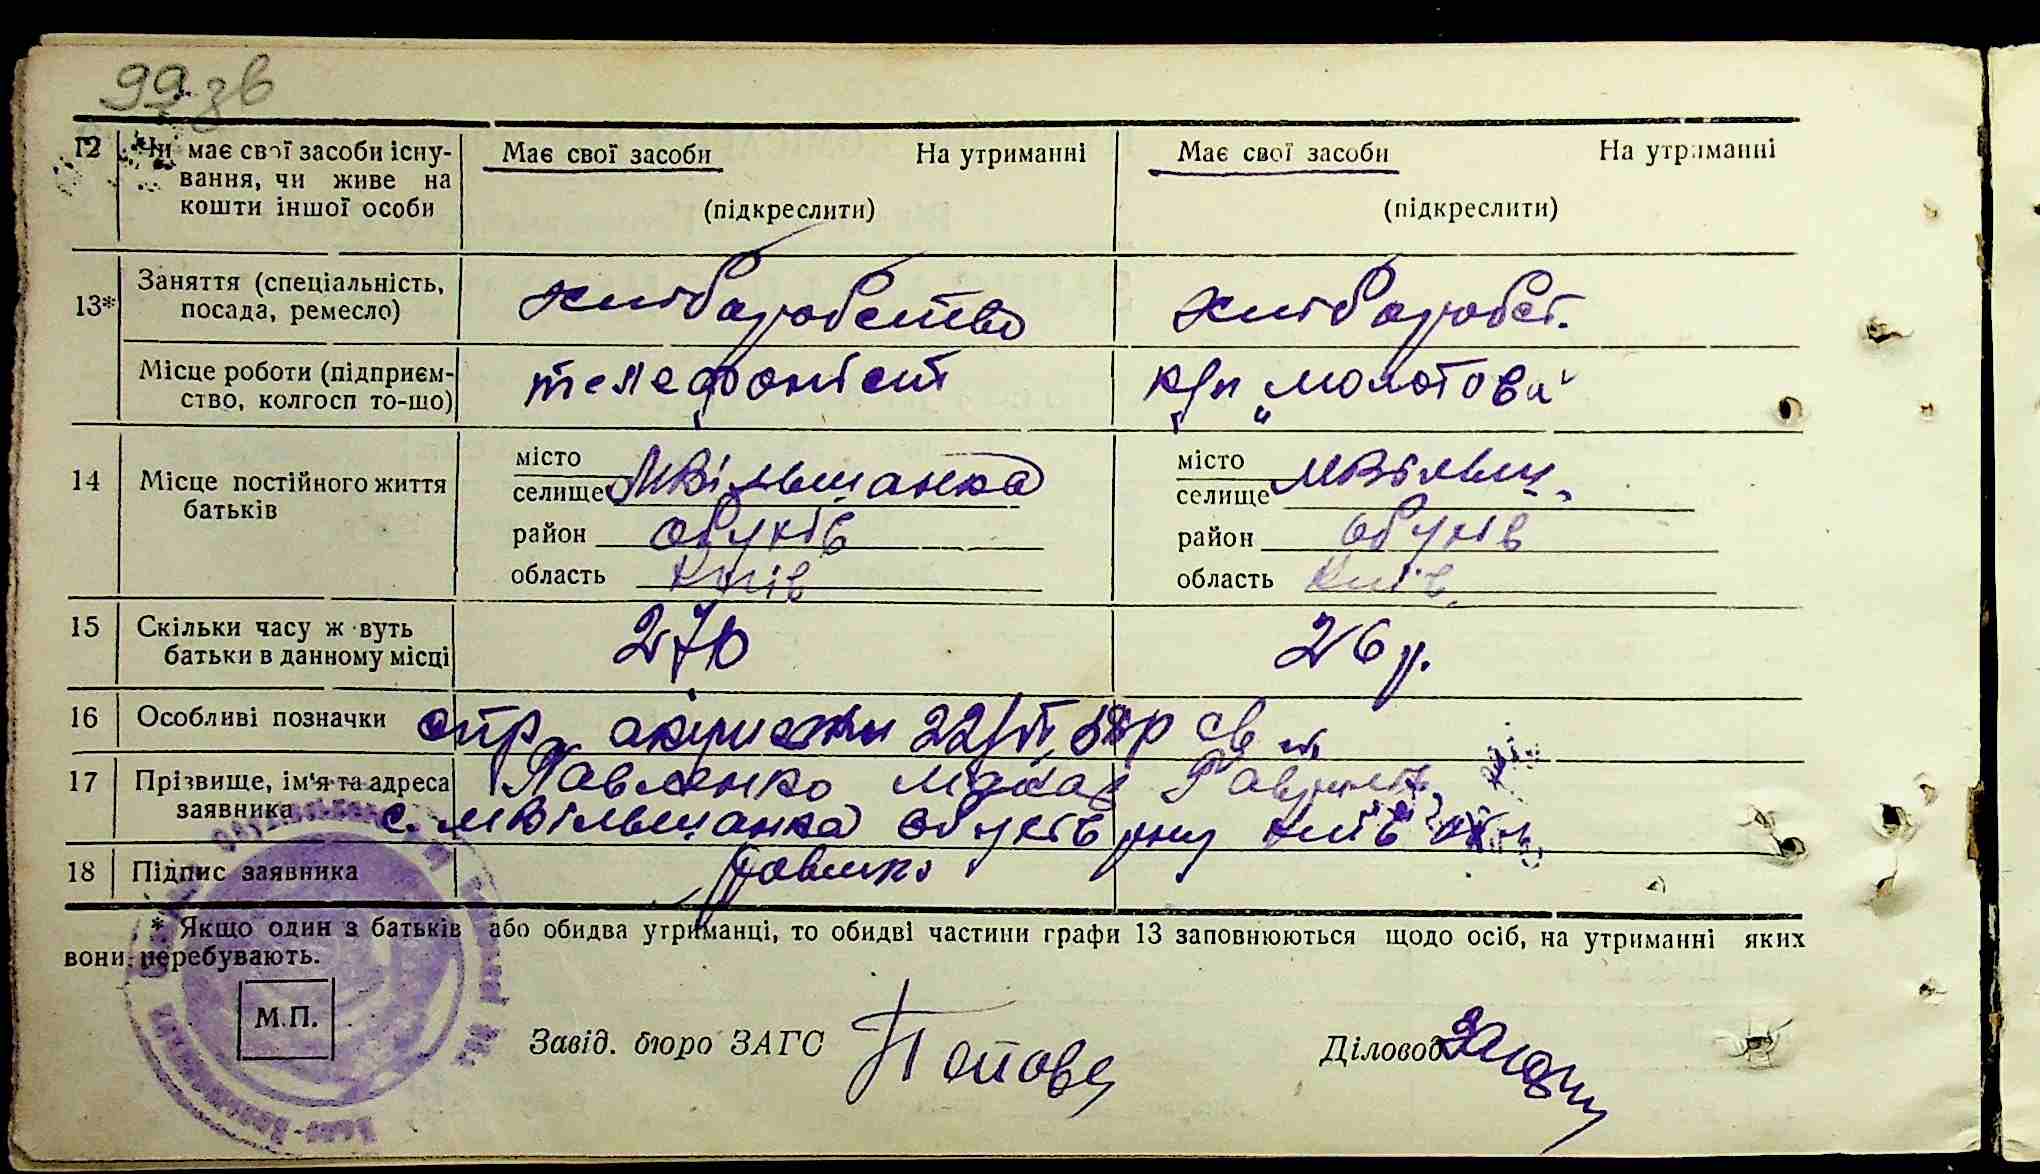 99 зв
12 Чи має свої засоби існу-
вання, чи живе на
кошти іншої особи
Має свої засоби На утриманні
(підкреслити)
Має свої засоби На утриманні
(підкреслити)
13* Заняття (спеціальність,
посада, ремесло)
хліборобство
хліборобст.
Місце роботи (підприєм-
ство, колгосп то-що)
телефоніст
к/гп „Молотова"
14 Місце постійного життя
батьків
місто
селище МВільшанка
район Обухів
область Київ
місто
селище МВільш.
район Обухів
область Київ.
15 Скільки часу ж вуть
батьки в данному місці
27р
26 р.
16 Особливі позначки
22/VI
17 Прізвище, ім'я та адреса
заявника
Павленко Макар Гаврил
с. МВільшанка Обухів рну Київ
18 Підпис заявника
Павленко
* Якщо один з батьків або обидва утриманці, то обидві частини графи 13 заповнюються щодо осіб, на утриманні яких
вони перебувають.
М.П.
Завід. бюро ЗАГС Попова
Діловод